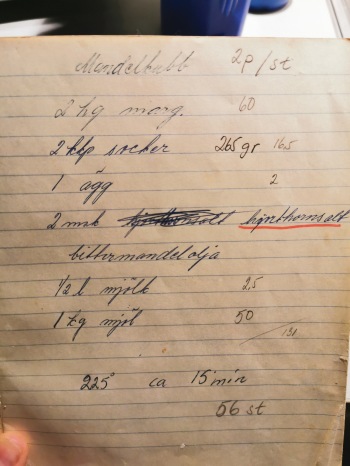 Mandelkubb 2p/st
2 hg marg. 60
2 kkp socker 265 gr 16,5
1 ägg 2
2 msk hjorthornsalt
bittermandelolja
1/2 l mjölk 2,5
1 kg mjöl 50
131
225° ca 15 min
56 st